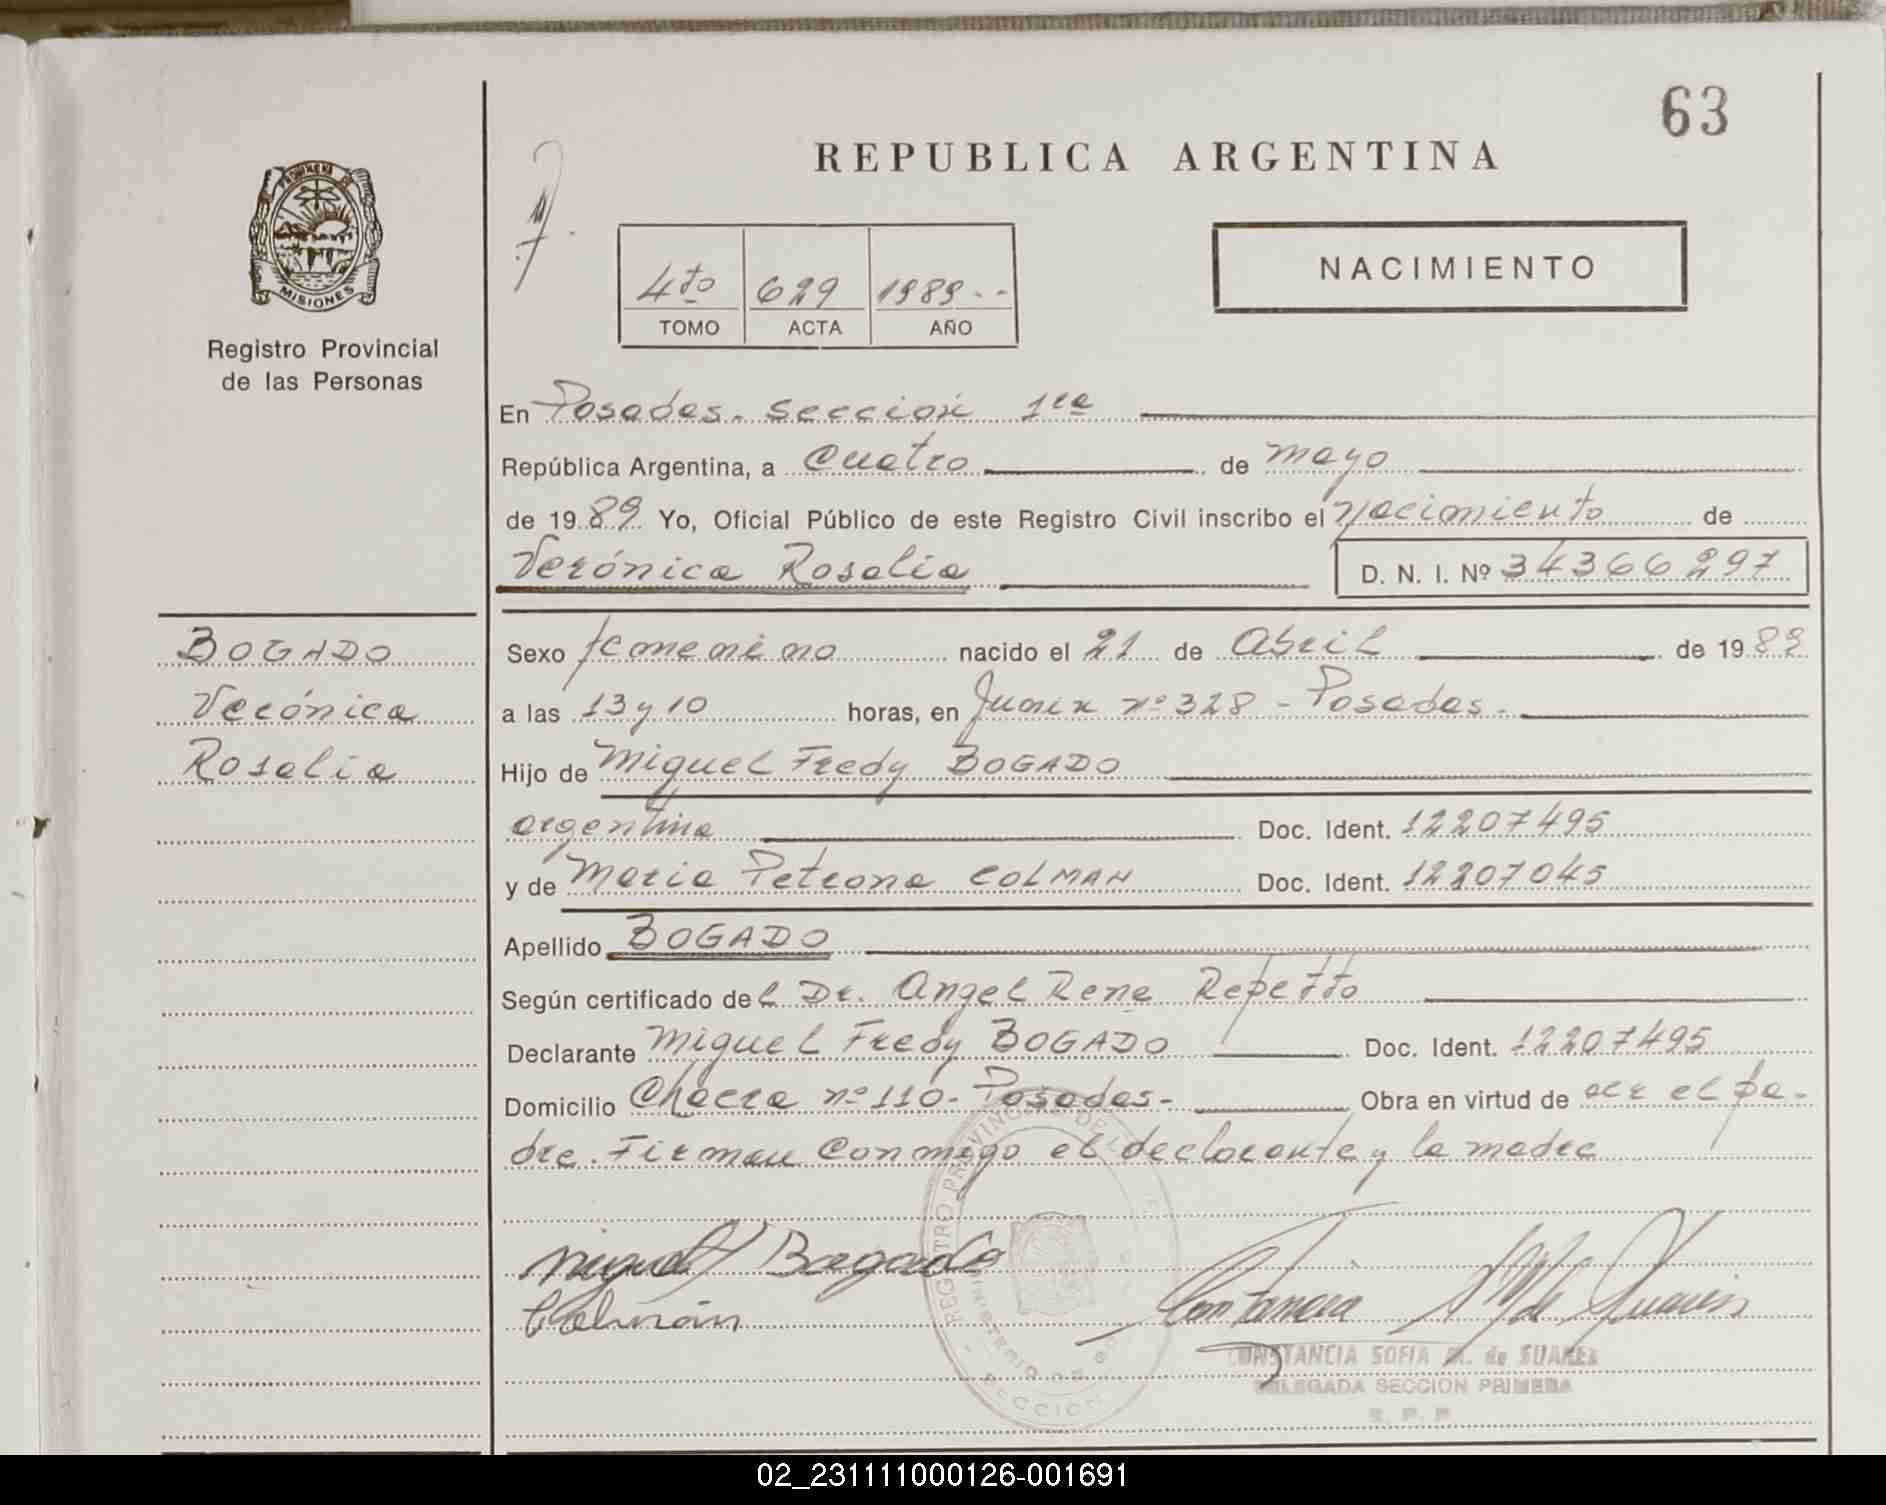 63
REPUBLICA ARGENTINA
NACIMIENTO
4to 629 1989
TOMO ACTA AÑO
MISIONES
Registro Provincial
de las Personas
En Posadas. Sección 1ra
República Argentina, a Cuatro de mayo
de 1989 Yo, Oficial Público de este Registro Civil inscribo el Nacimiento de
Verónica Rosalia D. N. I. Nº 34366297
BOGADO
Verónica
Rosalia
Sexo femenino nacido el 21 de Abril de 1989
a las 13 y 10 horas, en Junin nº 328 - Posadas.
Hijo de Miguel Fredy BOGADO
argentina Doc. Ident. 12207495
y de Maria Petrona COLMAN Doc. Ident. 12207045
Apellido BOGADO
Según certificado del Dr. Angel Rene Repetto
Declarante Miguel Fredy BOGADO Doc. Ident. 12207495
Domicilio Chacra nº 110 - Posadas - Obra en virtud de ser el pa-
dre. Firman conmigo el declarante y la madre
Miguel Bogado
Colmán
CONSTANCIA SOFIA M. de SUAREZ
DELEGADA SECCION PRIMERA
R. P. P
02_231111000126-001691